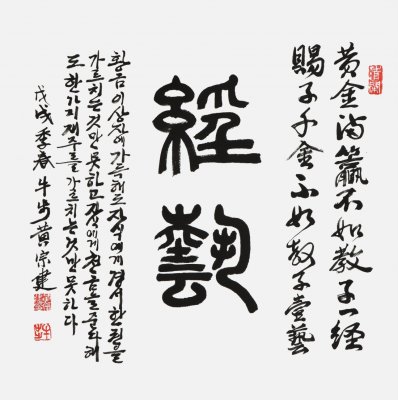 黃金滿籯不如教子一経
賜子千金不如教子壹藝
經藝
황금이 상자에 가득해도 자식에게 경서 한권을
가르치는것만 못하고 자식에게 천금을 준다 해
도 한가지 재주를 가르치는것만 못하다
戊戌季春 牛步 黃宗建